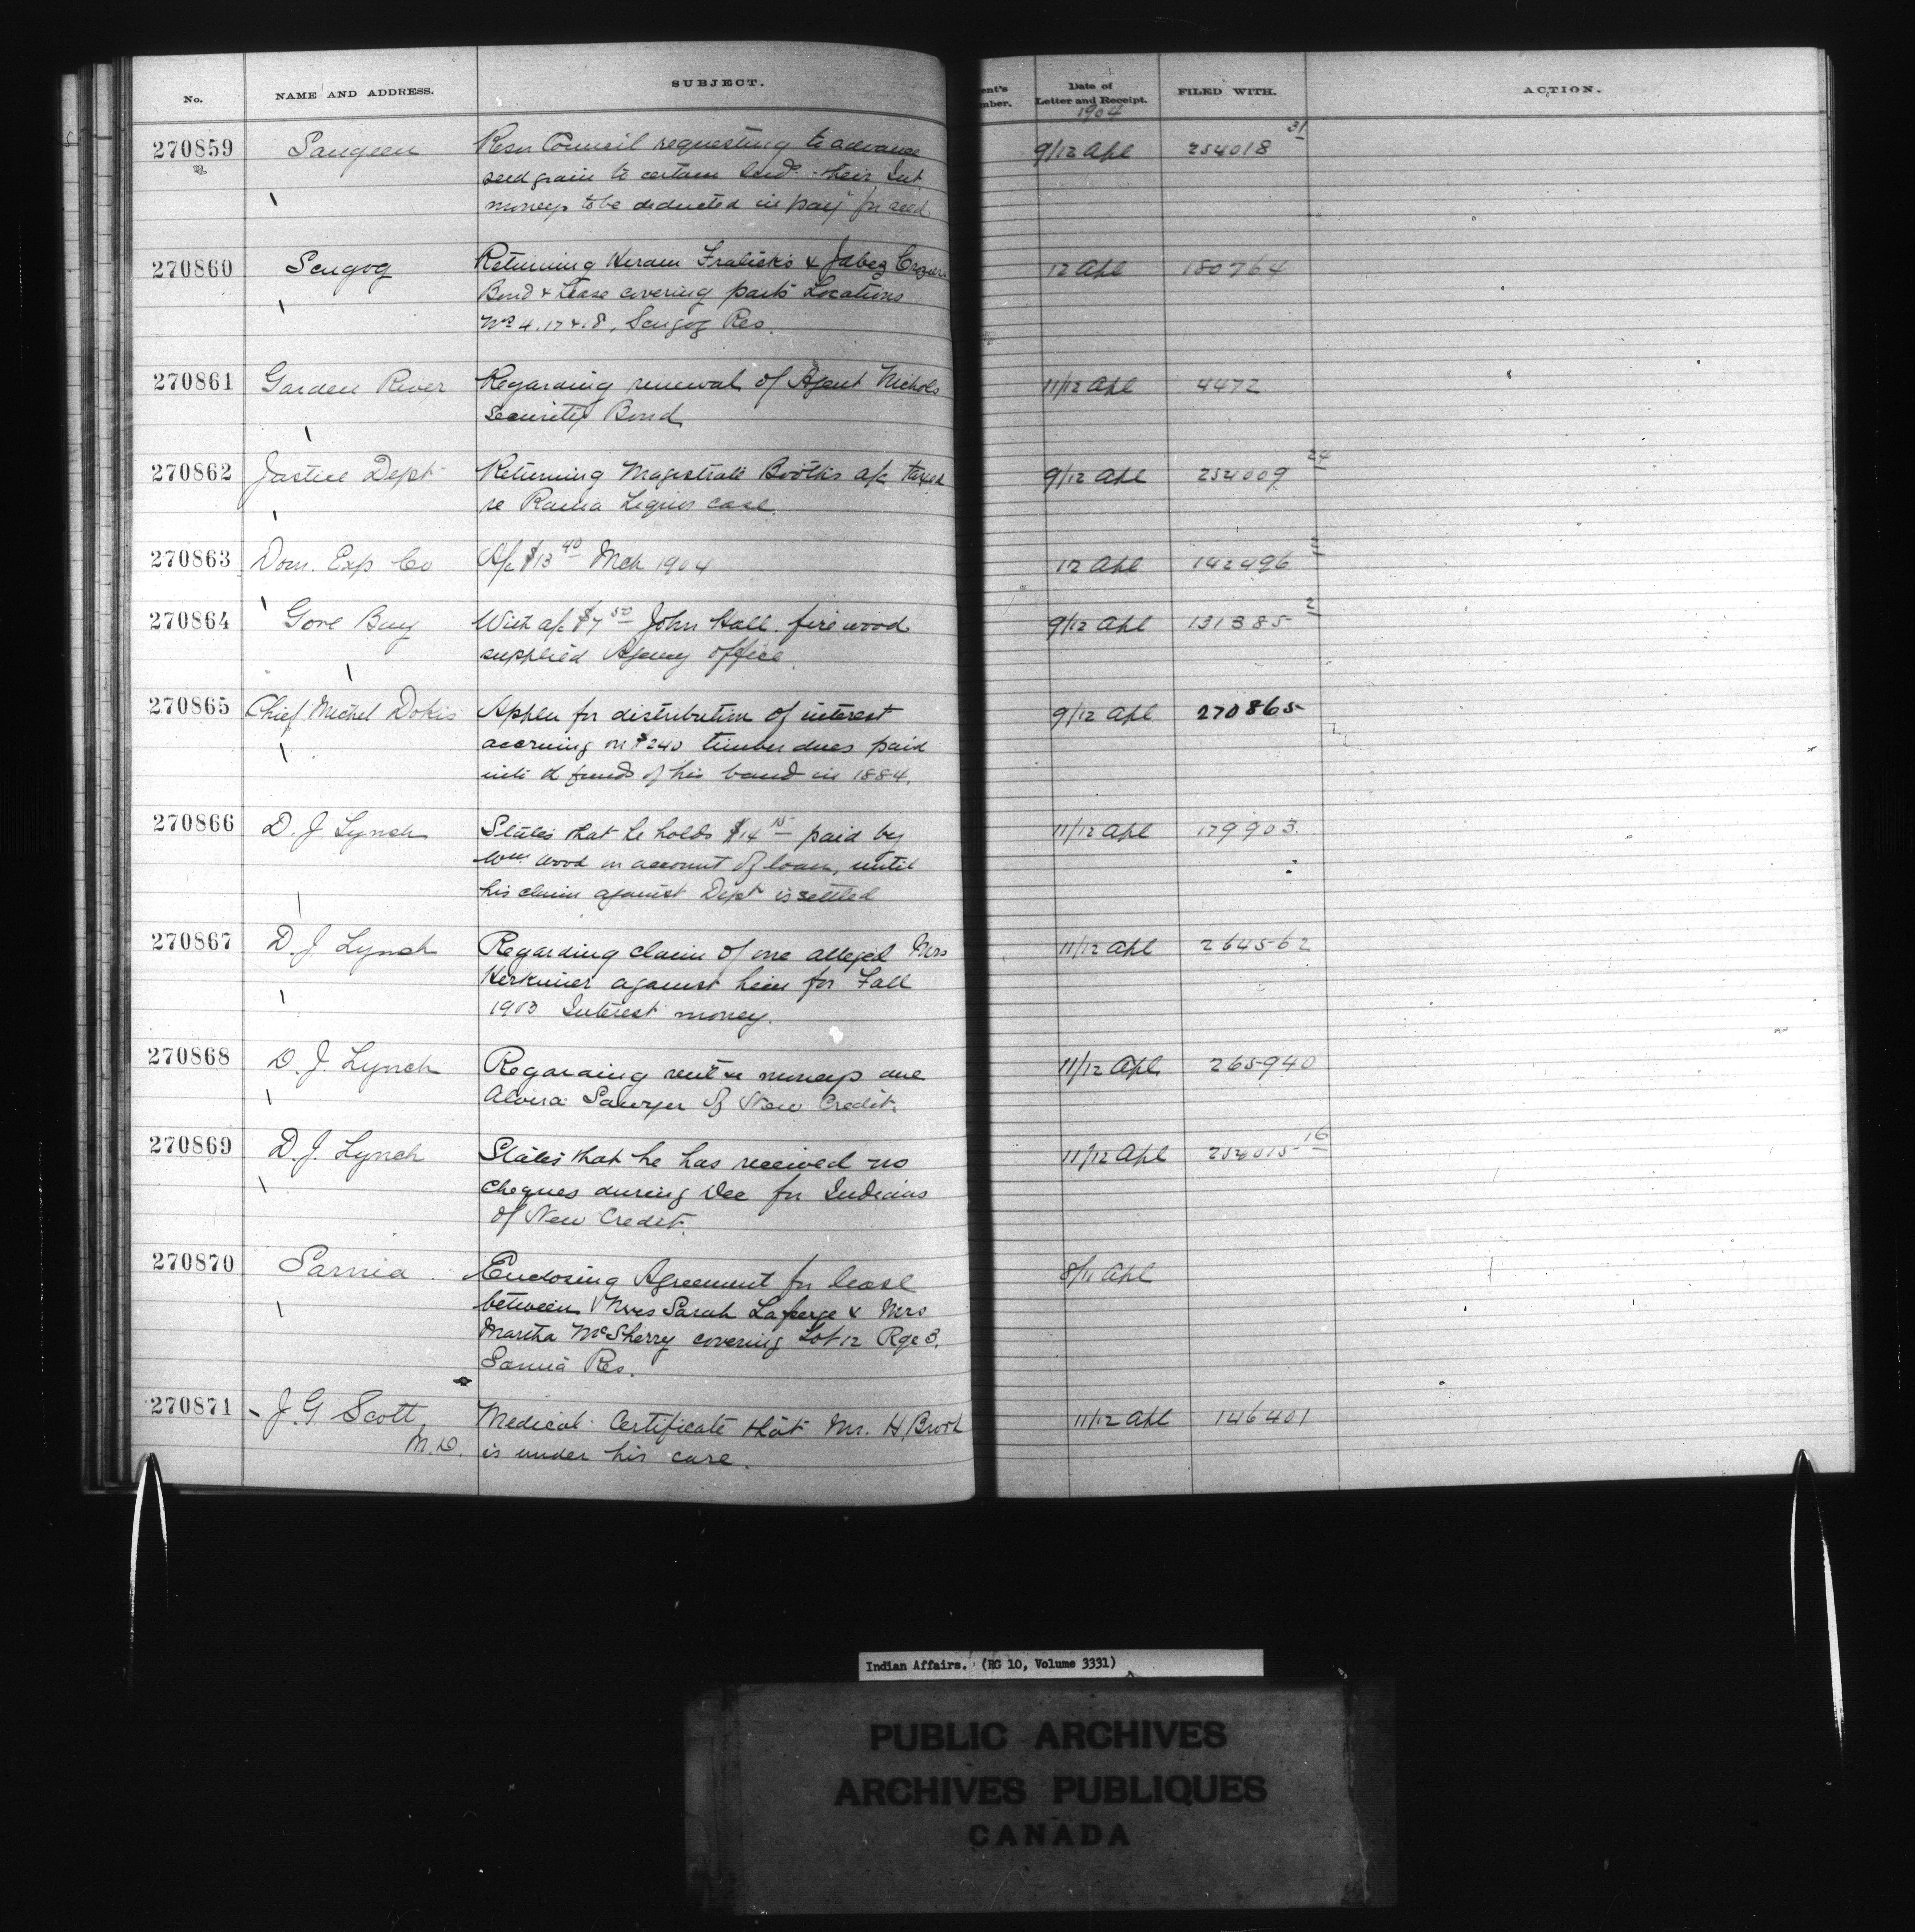 No. NAME AND ADDRESS. SUBJECT. ent's mber. Date of Letter and Receipt. FILED WITH. ACTION.
1904
270859 Saugeen Resn Council requesting to advance 9/12 Apl 254018 31
seed grain to certain Inds. their Int
moneys to be deducted in pay't for seed
270860 Scugog Returning Hiram Fralick's & Jabez Crozier 12 Apl 180764
Bond & Lease covering parts Locations
Nos 4, 17 & 18, Scugog Res.
270861 Garden River Regarding renewal of Agent Nichols 11/12 Apl 4472
Security Bond
270862 Justice Dept Returning Magistrate Booth's a/c taxed 9/12 Apl 254009 24
re Rama Liquor case.
270863 Dom. Exp Co A/c $13 40 Mch 1904 12 Apl 142496
270864 Gore Bay With a/c $7 50 John Hall. fire wood 9/12 Apl 131385 2
supplied Agency office.
270865 Chief Michel Dokis Applen for distribution of interest 9/12 Apl 270865
accruing on $240 timber dues paid
into funds of his band in 1884.
270866 D. J. Lynch States that he holds $14 15 paid by 11/12 Apl 179903.
Wm Wood on account of loan, until
his claim against Dept is settled
270867 D. J. Lynch Regarding claim of one alleged Mrs 11/12 Apl 264562
Herkimer against him for Fall
1903 Interest money.
270868 D. J. Lynch Regarding moneys due 11/12 Apl. 265940
Alvira Sawyer of New Credit.
270869 D. J. Lynch States that he has received no 11/12 Apl 254015 16
cheques during Dec for Indians
of New Credit.
270870 Sarnia Enclosing Agreement for lease 8/11 Apl
between Mrs Sarah Laforge & Mrs
Martha McSherry covering Lot 12 Rge 3.
Sarnia Res.
270871 J. G Scott, Medical Certificate that Mr. H. Brook 11/12 Apl 146401
M.D. is under his care.
Indian Affairs. (RG 10, Volume 3331)
PUBLIC ARCHIVES
ARCHIVES PUBLIQUES
CANADA